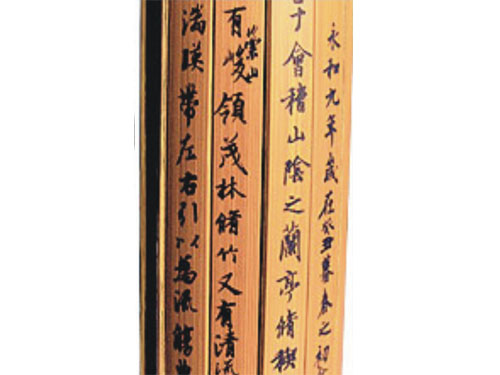 永和九年歲在癸丑暮春之初
于會稽山陰之蘭亭脩禊
有崇山峻領茂林脩竹又有清流
湍暎帶左右引以為流觴曲